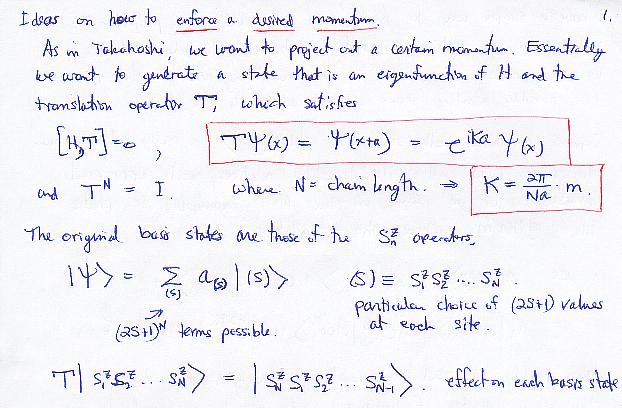 Ideas on how to enforce a desired momentum. 1.
As in Takahashi, we want to project out a certain momentum. Essentially
we want to generate a state that is an eigenfunction of H and the
translation operator T, which satisfies
[H,T]=0 , TΨ(x) = Ψ(x+a) = e^{ika} Ψ(x)
and T^N = I. where N = chain length. ⇒ K = 2π/Na · m.
The original basis states are those of the S_n^z operators,
|Ψ⟩ = Σ_{(s)} a_{(s)} |(s)⟩ (S) ≡ S_1^z S_2^z .... S_N^z .
particular choice of (2S+1) values
(2S+1)^N terms possible. at each site.
T| S_1^z S_2^z ... S_N^z ⟩ = | S_N^z S_1^z S_2^z ... S_{N-1}^z ⟩ . effect on each basis state